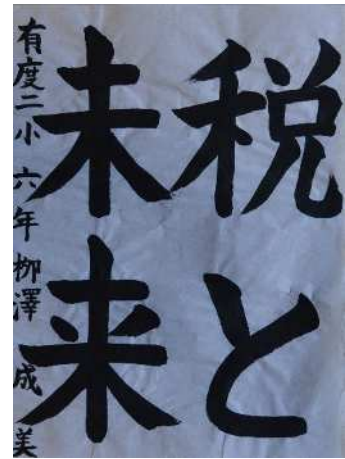 税と
未来
有度二小 六年 柳澤 成美